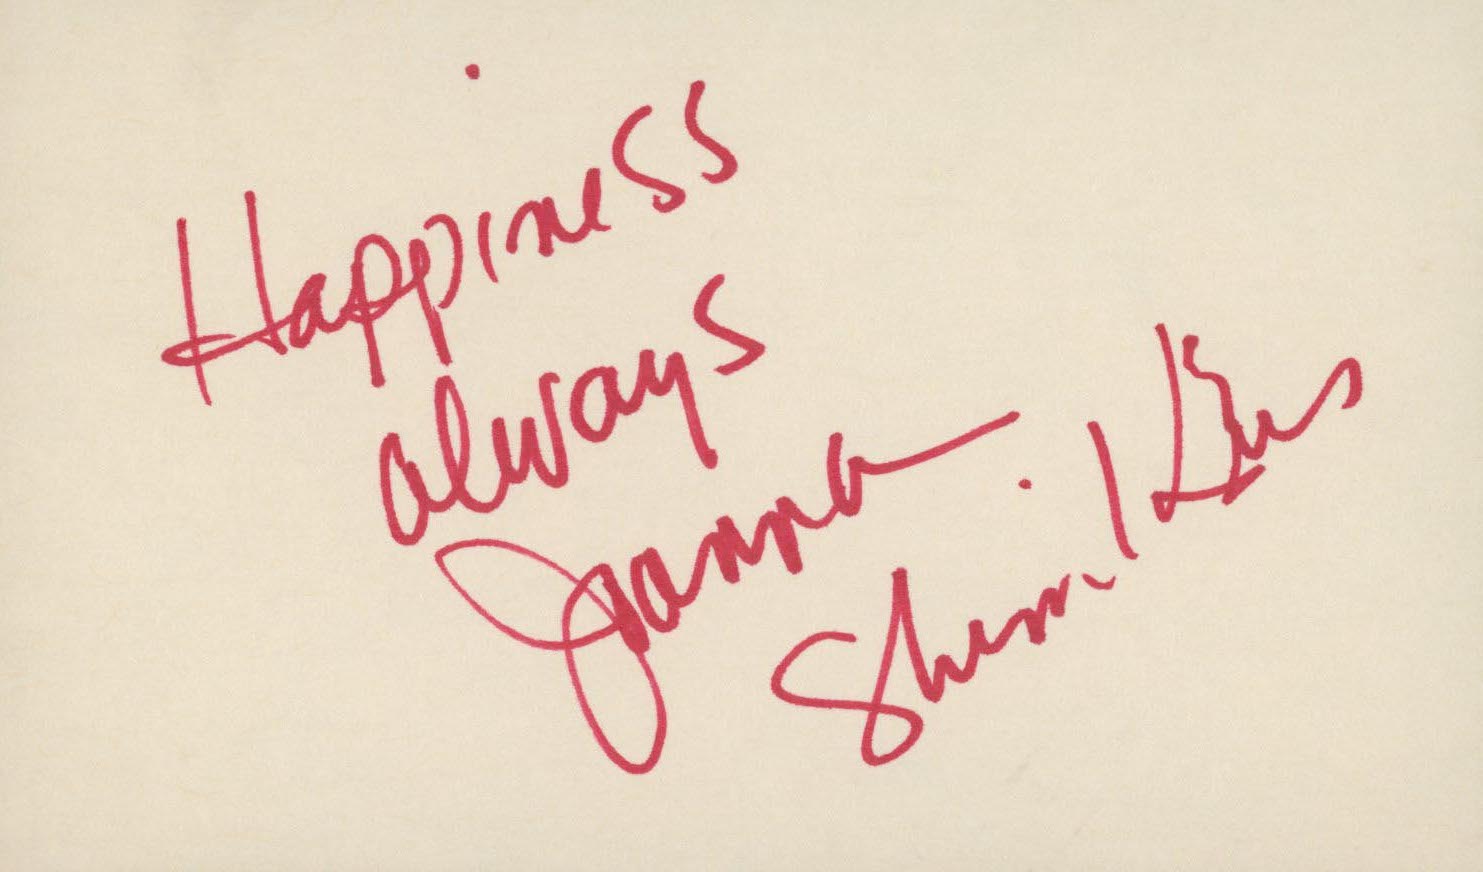 Happiness
always
Joanna
Shimkus